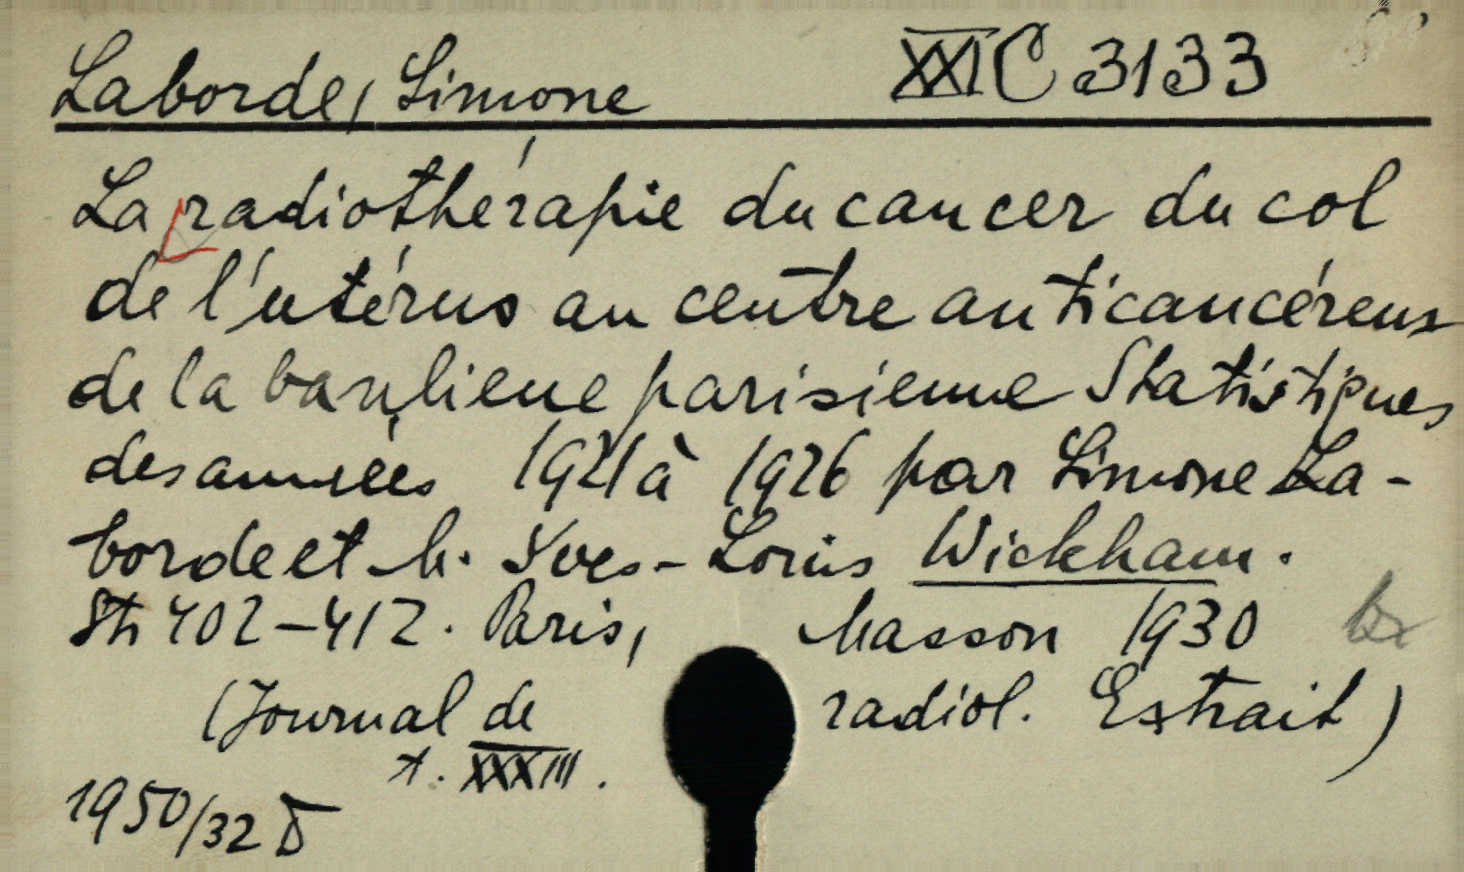 Laborde, Simone XXI C 3133
La radiothérapie du cancer du col
de l'utérus au centre anticancéreux
de la banlieue parisienne Statistiques
des années 1921 à 1926 par Simone La-
borde et M. Yves-Louis Wickham.
Str 402-412. Paris, Masson 1930
(Journal de radiol. Extrait)
t. XXXIII.
1950/32 D